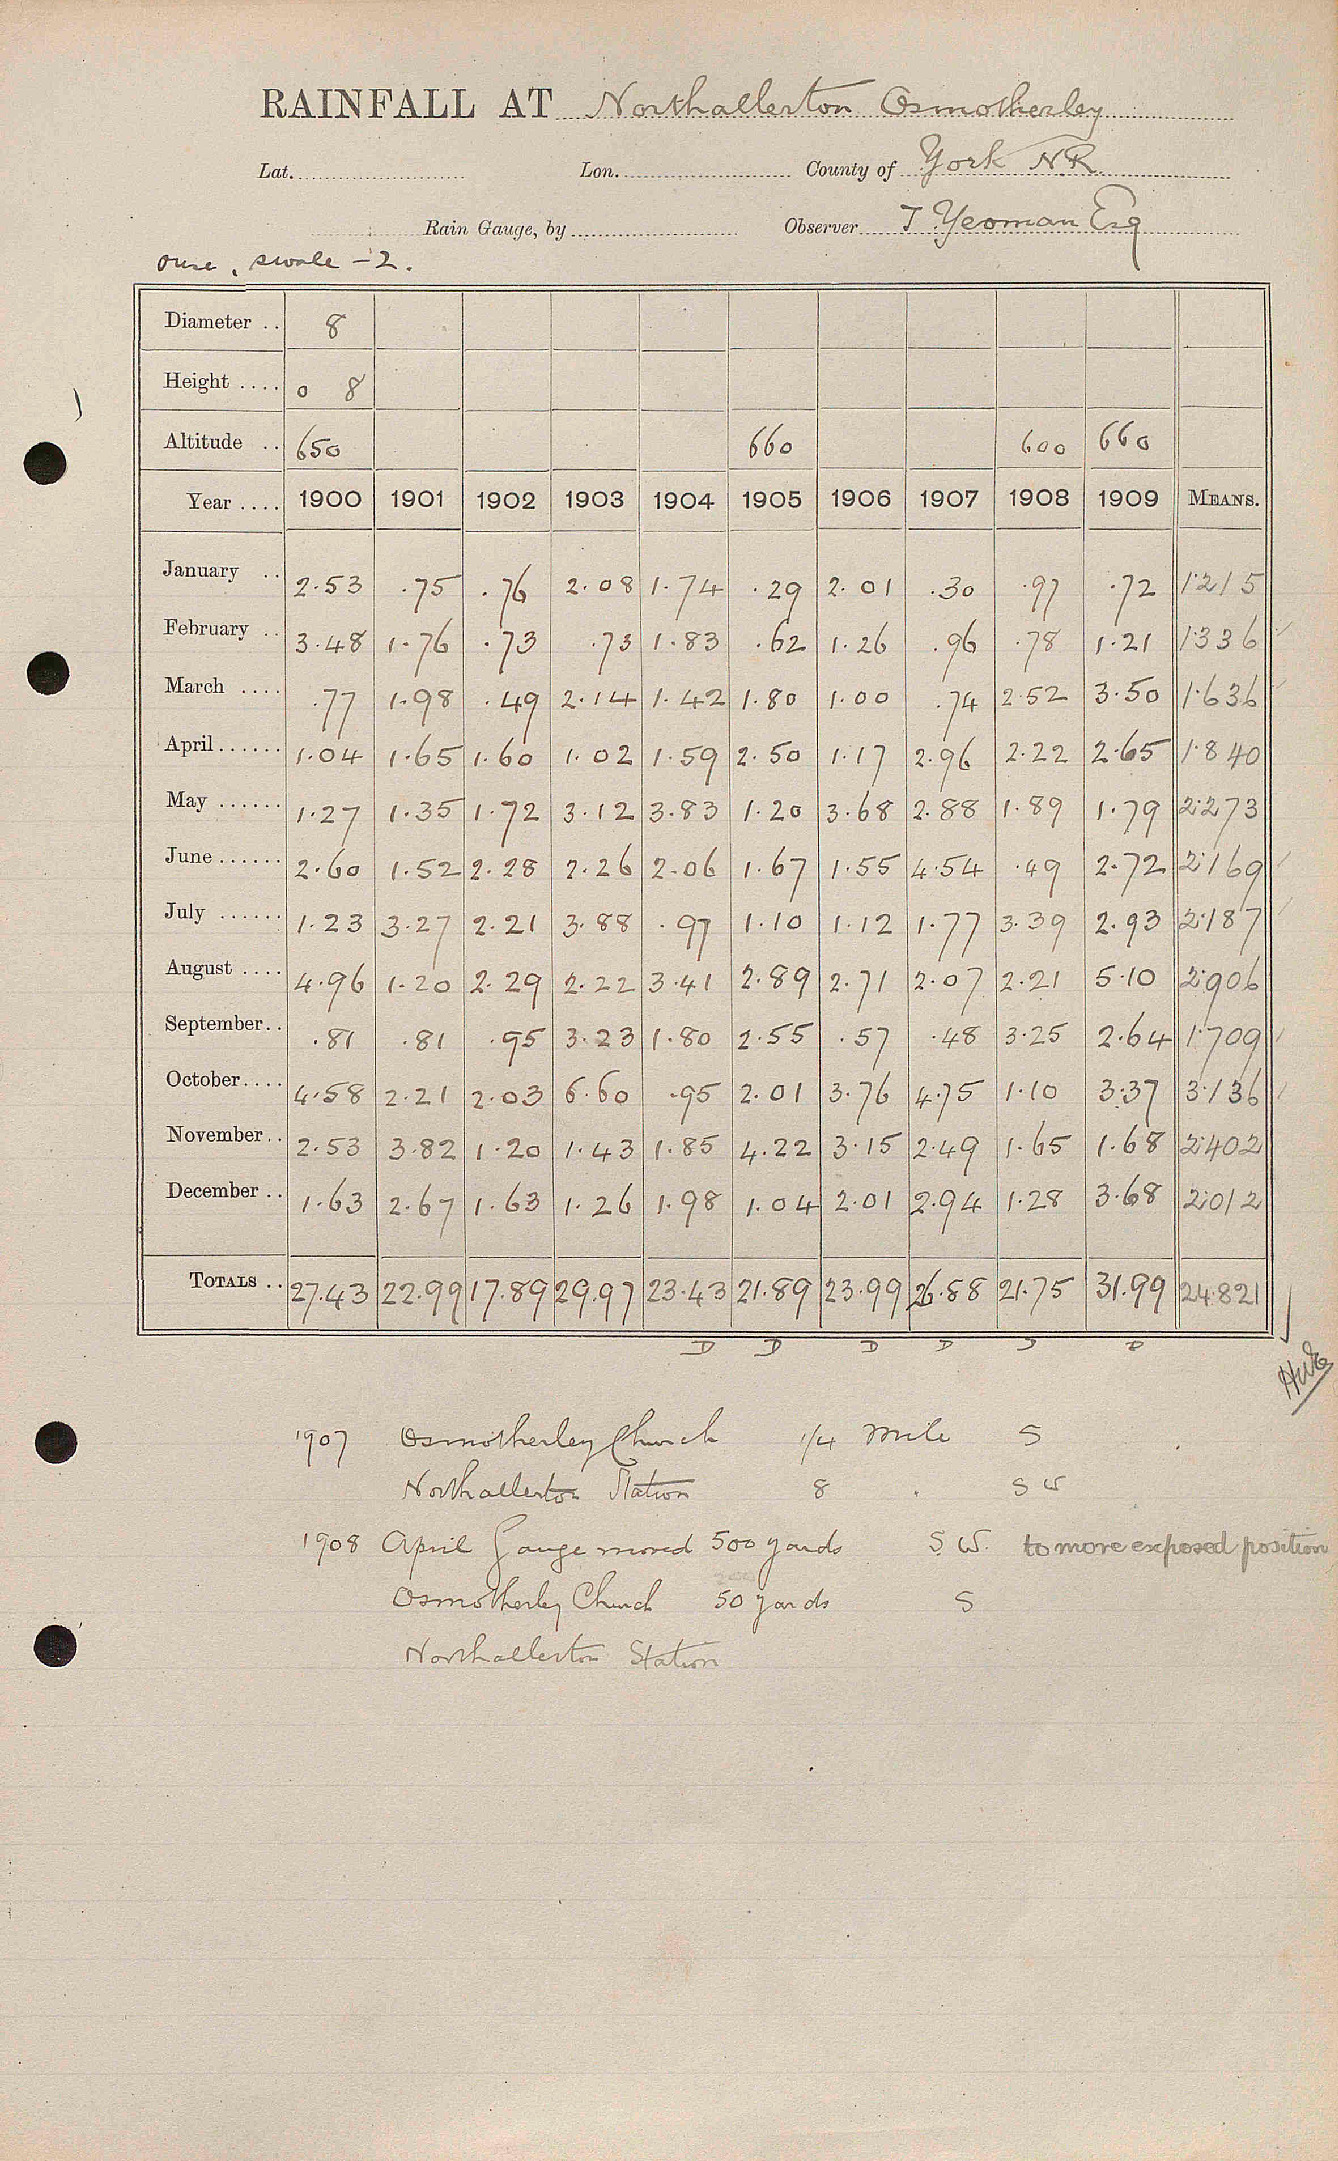 RAINFALL AT Northallerton Osmotherley
Lat. Lon. County of York N.R.
Rain Gauge, by Observer T Yeoman Esq
Ouse, Swale - 2.
Diameter .. 8
Height .... 0 8
Altitude .. 650 660 600 660
Year .... 1900 1901 1902 1903 1904 1905 1906 1907 1908 1909 MEANS.
January .. 2.53 .75 .76 2.08 1.74 .29 2.01 .30 .97 .72 1.215
February .. 3.48 1.76 .73 .73 1.83 .62 1.26 .96 .78 1.21 1.336
March .... .77 1.98 .49 2.14 1.42 1.80 1.00 .74 2.52 3.50 1.636
April...... 1.04 1.65 1.60 1.02 1.59 2.50 1.17 2.96 2.22 2.65 1.840
May ...... 1.27 1.35 1.72 3.12 3.83 1.20 3.68 2.88 1.89 1.79 2.273
June...... 2.60 1.52 2.28 2.26 2.06 1.67 1.55 4.54 .49 2.72 2.169
July ...... 1.23 3.27 2.21 3.88 .97 1.10 1.12 1.77 3.39 2.93 2.187
August .... 4.96 1.20 2.29 2.22 3.41 2.89 2.71 2.07 2.21 5.10 2.906
September.. .81 .81 .95 3.23 1.80 2.55 .57 .48 3.25 2.64 1.709
October.... 4.58 2.21 2.03 6.60 .95 2.01 3.76 4.75 1.10 3.37 3.136
November.. 2.53 3.82 1.20 1.43 1.85 4.22 3.15 2.49 1.65 1.68 2.402
December .. 1.63 2.67 1.63 1.26 1.98 1.04 2.01 2.94 1.28 3.68 2.012
TOTALS .. 27.43 22.99 17.89 29.97 23.43 21.89 23.99 26.88 21.75 31.99 24.821
D D D D D D
1907 Osmotherley Church 1/4 Mile S
Northallerton Station 8 SW
1908 April Gauge moved 500 yards S.W. to more exposed position
Osmotherley Church 50 yards S
Northallerton Station